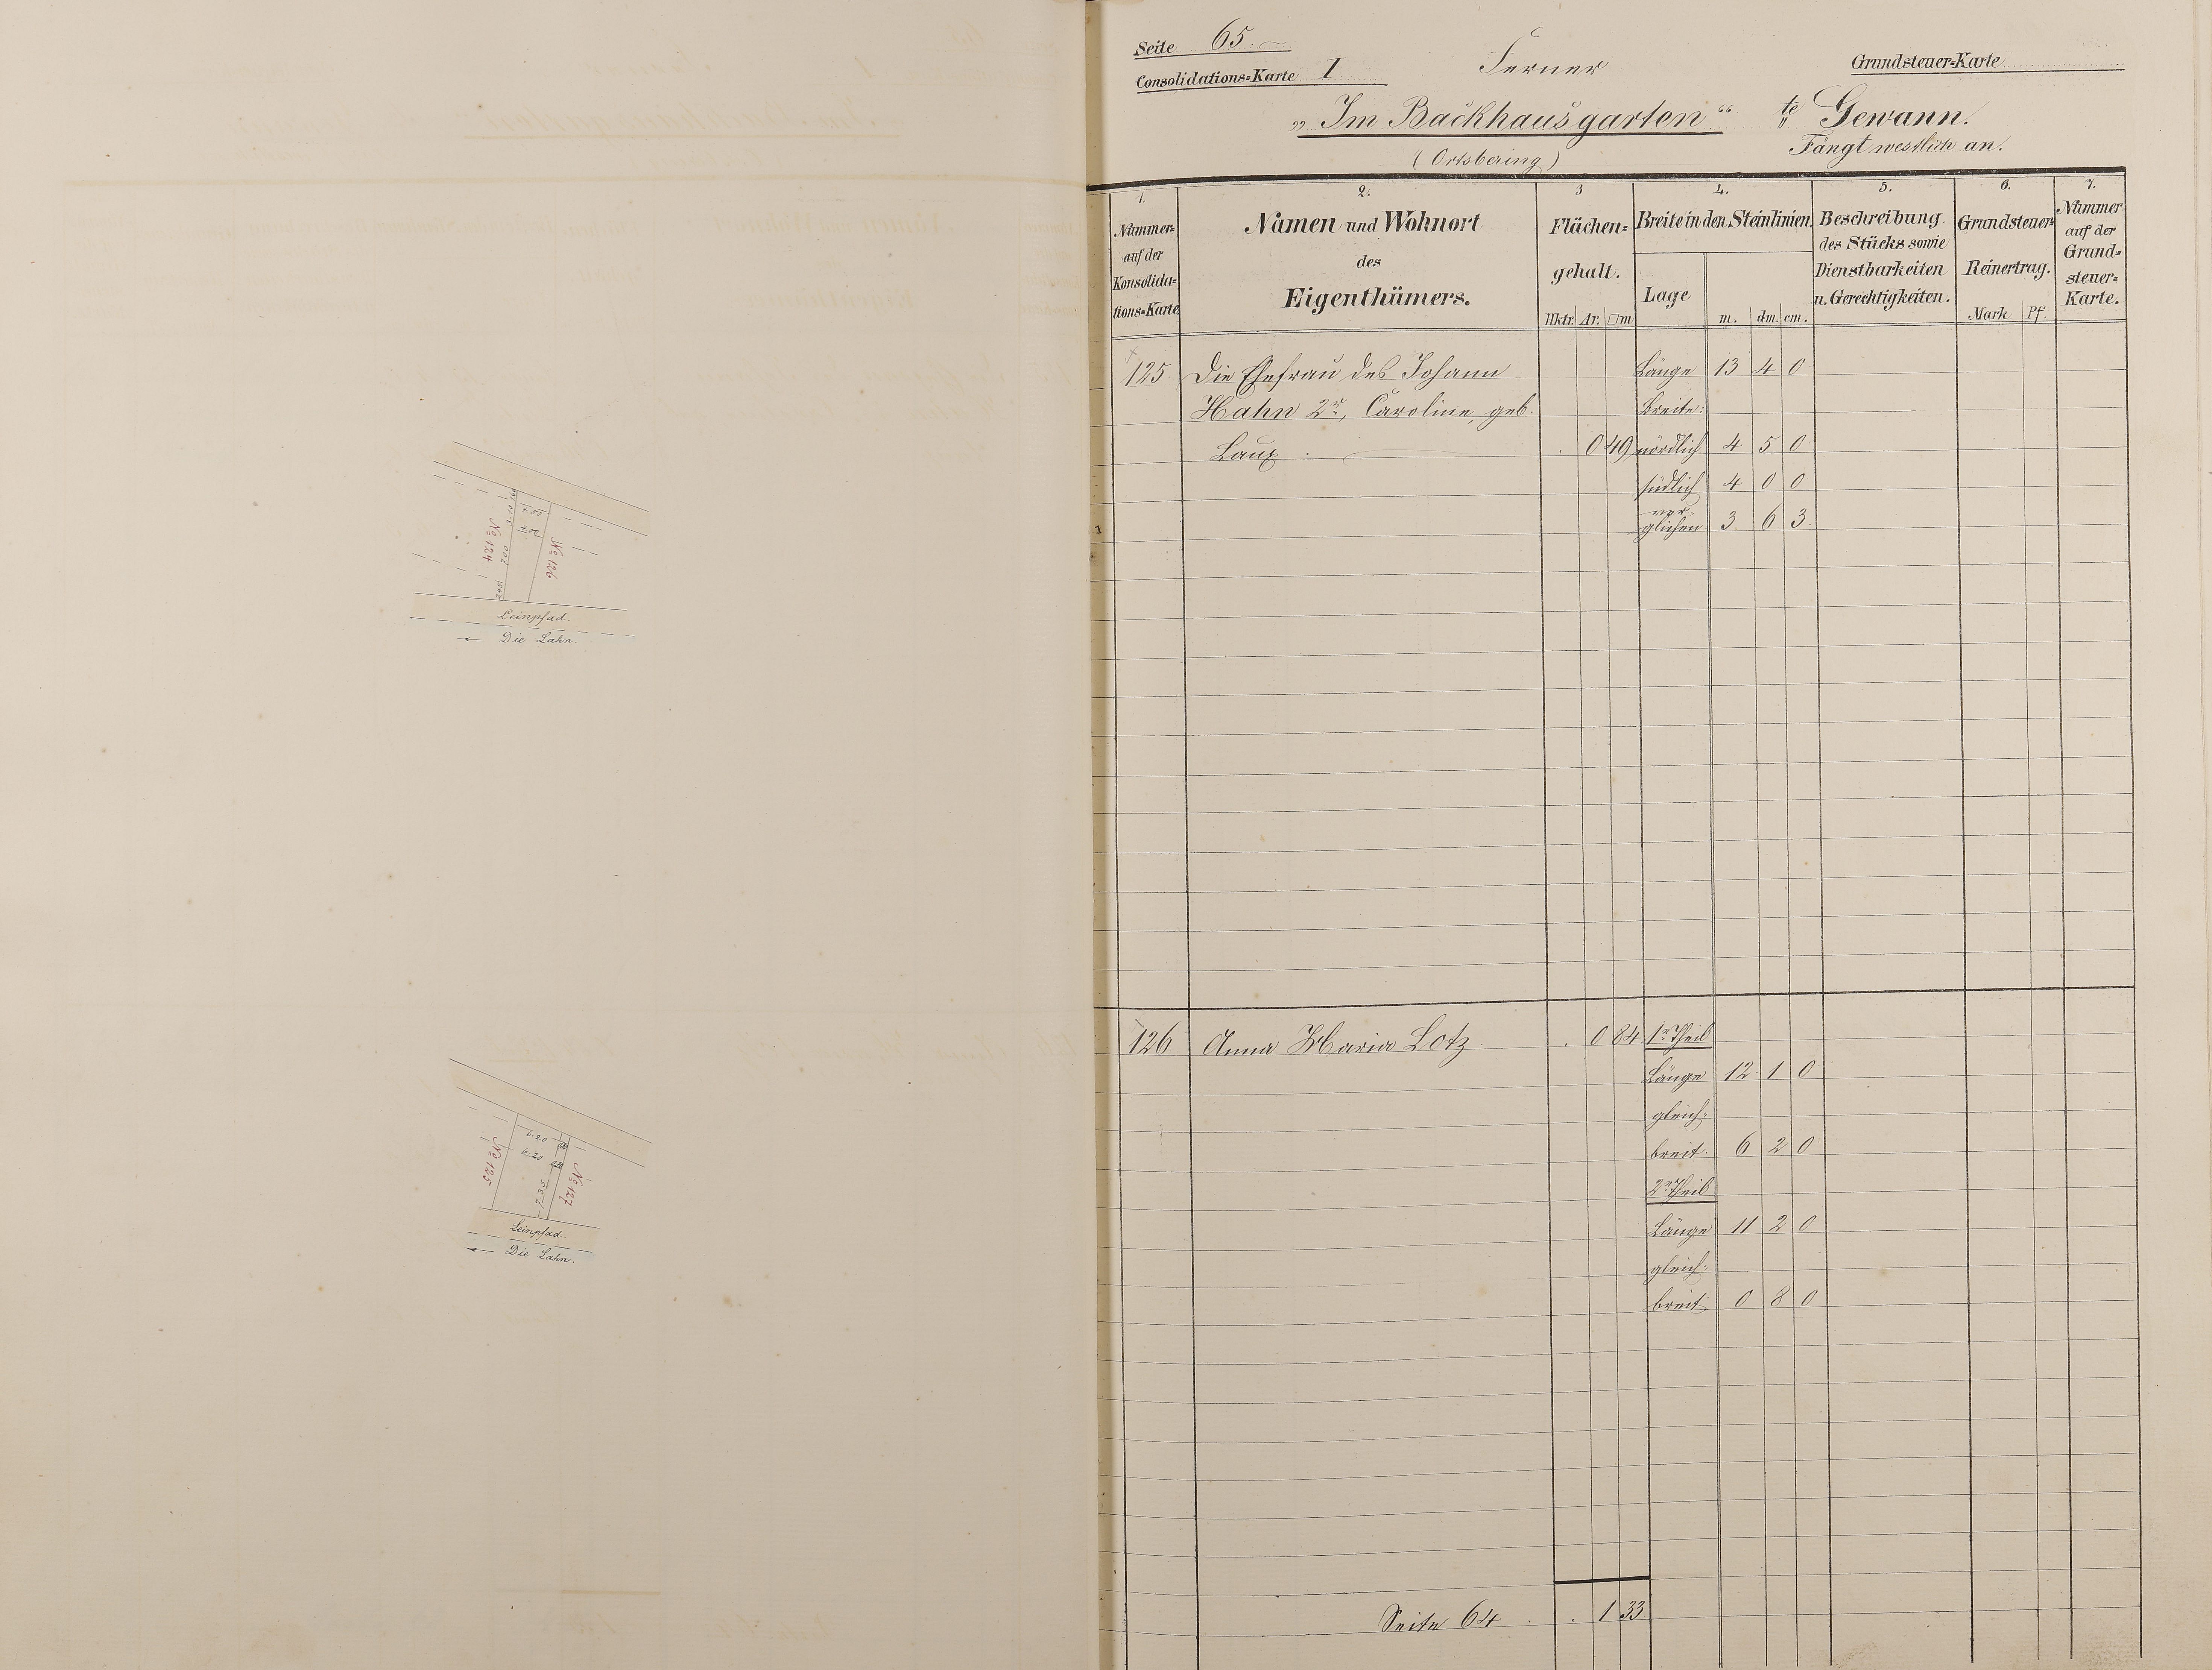 Leinpfad.
Die Lahn.
№ 124
№ 126
7.00
Leinpfad.
Die Lahn.
№ 125
№ 127
6.20
6.20
7.35
Seite 65.
Consolidations=Karte I
Ferner
Grundsteuer=Karte
„Im Backhausgarten“ te Gewann.
(Ortsbering)
Fängt westlich an.
1. 2. 3 4. 5. 6. 7.
Nummer auf der Konsolida=tions=Karte
Namen und Wohnort
des
Eigenthümers.
Flächen=
gehalt.
Hktr. Ar. □m
Breite in den Steinlinien.
Lage m. dm. cm.
Beschreibung
des Stücks sowie
Dienstbarkeiten
u. Gerechtigkeiten.
Grundsteuer=
Reinertrag.
Mark Pf.
Nummer
auf der
Grund=
steuer=
Karte.
125 Die Ehefrau des Johann Länge 13 4 0
Hahn 2r, Caroline, geb. Breite:
Laux . 0 49 nördlich 4 5 0
südlich 4 0 0
ver-
glichen 3 6 3
126 Anna Maria Lotz . 0 84 1r Theil
Länge 12 1 0
gleich=
breit. 6 2 0
2r Theil
Länge 11 2 0
gleich=
breit 0 8 0
Seite 64 . . 1 33